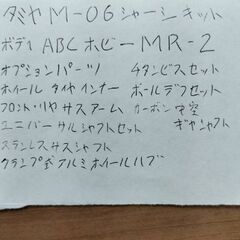 タミヤ M-06シャーシキット
ボディ ABCホビーMR-2
オプションパーツ
チタンビスセット
ホイール タイヤ インナー
ボールデフセット
フロント・リヤ サスアーム
カーボン中空
ギヤシャフト
ユニバーサルシャフトセット
ステンレスサスシャフト
クランプ式アルミホイールハブ